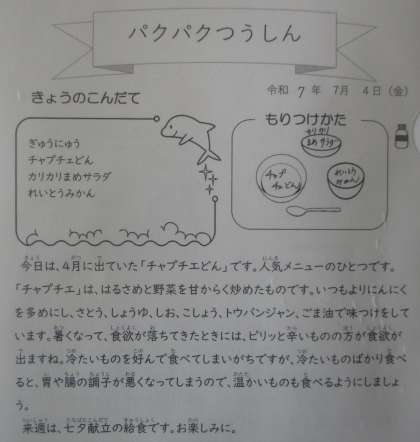 パクパクつうしん
令和 7 年 7月 4日(金)
きょうのこんだて
ぎゅうにゅう
チャプチェどん
カリカリまめサラダ
れいとうみかん
もりつけかた
カリカリ
まめサラダ
チャプ
チェどん
れいとう
みかん
今日は、4月に出ていた「チャプチェどん」です。人気メニューのひとつです。
「チャプチェ」は、はるさめと野菜を甘からく炒めたものです。いつもよりにんにく
を多めにし、さとう、しょうゆ、しお、こしょう、トウバンジャン、ごま油で味つけをして
います。暑くなって、食欲が落ちてきたときには、ピリッと辛いものの方が食欲が
出ますね。冷たいものを好んで食べてしまいがちですが、冷たいものばかり食べ
ると、胃や腸の調子が悪くなってしまうので、温かいものも食べるようにしましょ
う。
来週は、七夕献立の給食です。お楽しみに。